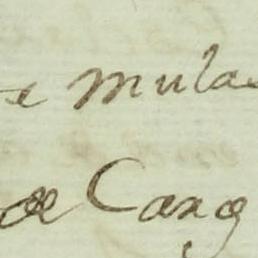 e mulas
de Carg